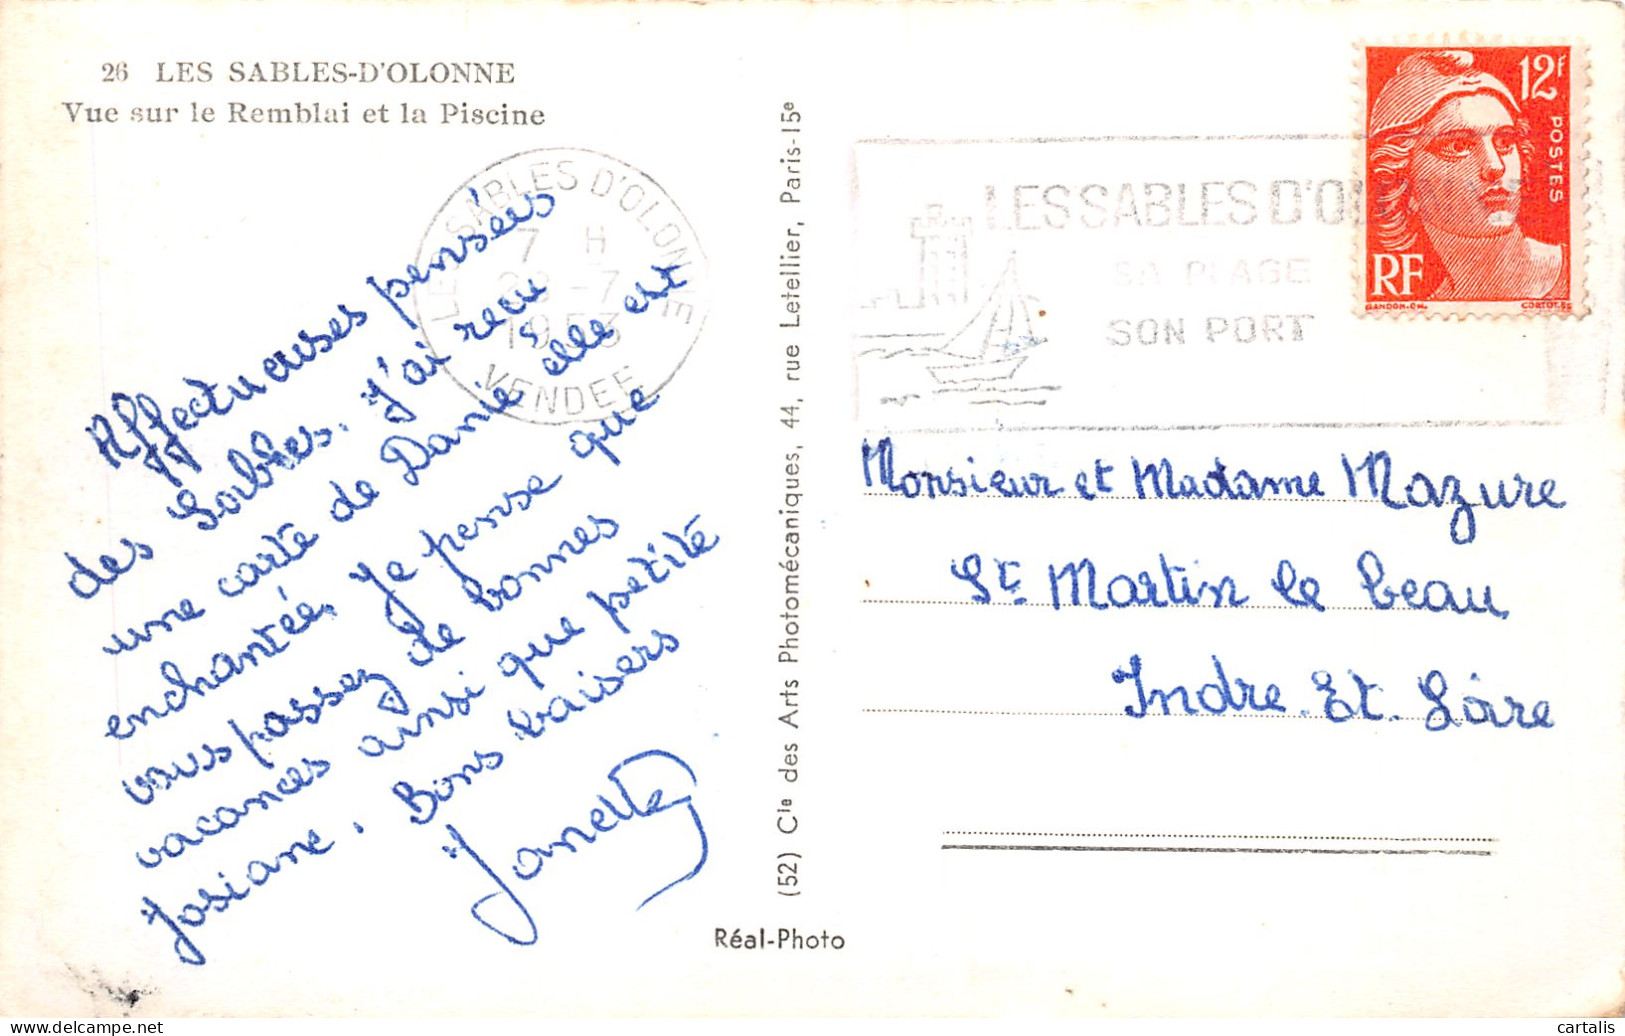 26 LES SABLES-D'OLONNE
Vue sur le Remblai et la Piscine
LES SABLES D'OLONNE
7 H
28 -7
1953
VENDEE
Affectueuses pensées
des Sables. J'ai reçu
une carte de Danie elle est
enchantée. Je pense que
vous passez de bonnes
vacances ainsi que petite
Josiane. Bons baisers
Janette
(52) Cie des Arts Photomécaniques, 44, rue Letellier, Paris-15e
Réal-Photo
LES SABLES D'OLONNE
SA PLAGE
SON PORT
12F
POSTES
RF
GANDON-CH.
CORTOT-SC
Monsieur et Madame Mazure
St Martin le beau
Indre. Et. Loire
cartalis